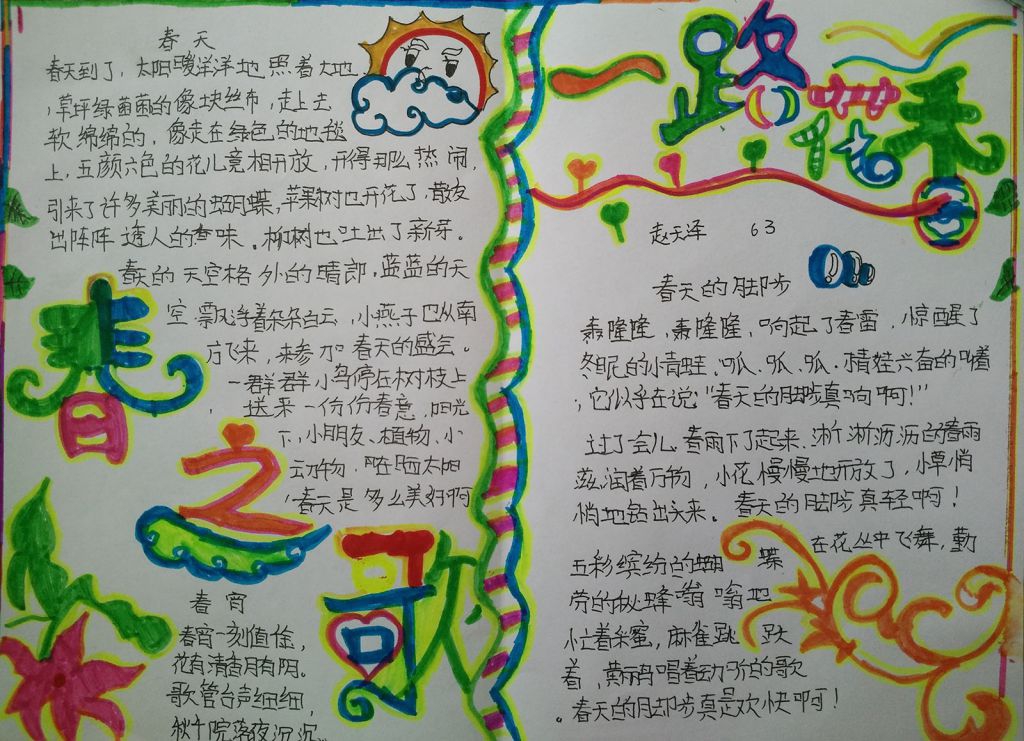 春天
春天到了，太阳暖洋洋地照着大地
，草坪绿茵茵的像块丝布，走上去
软绵绵的，像走在绿色的地毯
上，五颜六色的花儿竞相开放，开得那么热闹，
引来了许多美丽的蝴蝶，苹果树也开花了，散发
出阵阵透人的香味。柳树也吐出了新芽。
春天的天空格外的晴郎，蓝蓝的天
空飘浮着朵朵白云，小燕子也从南
方飞来，来参加春天的盛会。
一群群小鸟停在树枝上
，送来一份份春意，阳光
下，小朋友、植物、小
动物，在晒太阳
，春天是多么美好啊
春之歌
春宵
春宵一刻值金，
花有清香月有阴。
歌管台声细细，
秋千院落夜沉沉。
一路花香
赵天泽 63
春天的脚步
轰隆隆，轰隆隆，响起了春雷，惊醒了
冬眠的小青蛙，呱、呱、呱、青蛙兴奋的唱着
，它似乎在说：“春天的脚步真响啊！”
过了会儿春雨下了起来、淅淅沥沥的春雨
滋润着万物，小花慢慢地开放了，小草悄
悄地钻出头来。春天的脚步真轻啊！
五彩缤纷的蝴蝶在花丛中飞舞，勤
劳的秋蜂嗡嗡地
忙着采蜜，麻雀跳跃
着，黄丽鸟唱着动听的歌
。春天的脚步真是欢快啊！